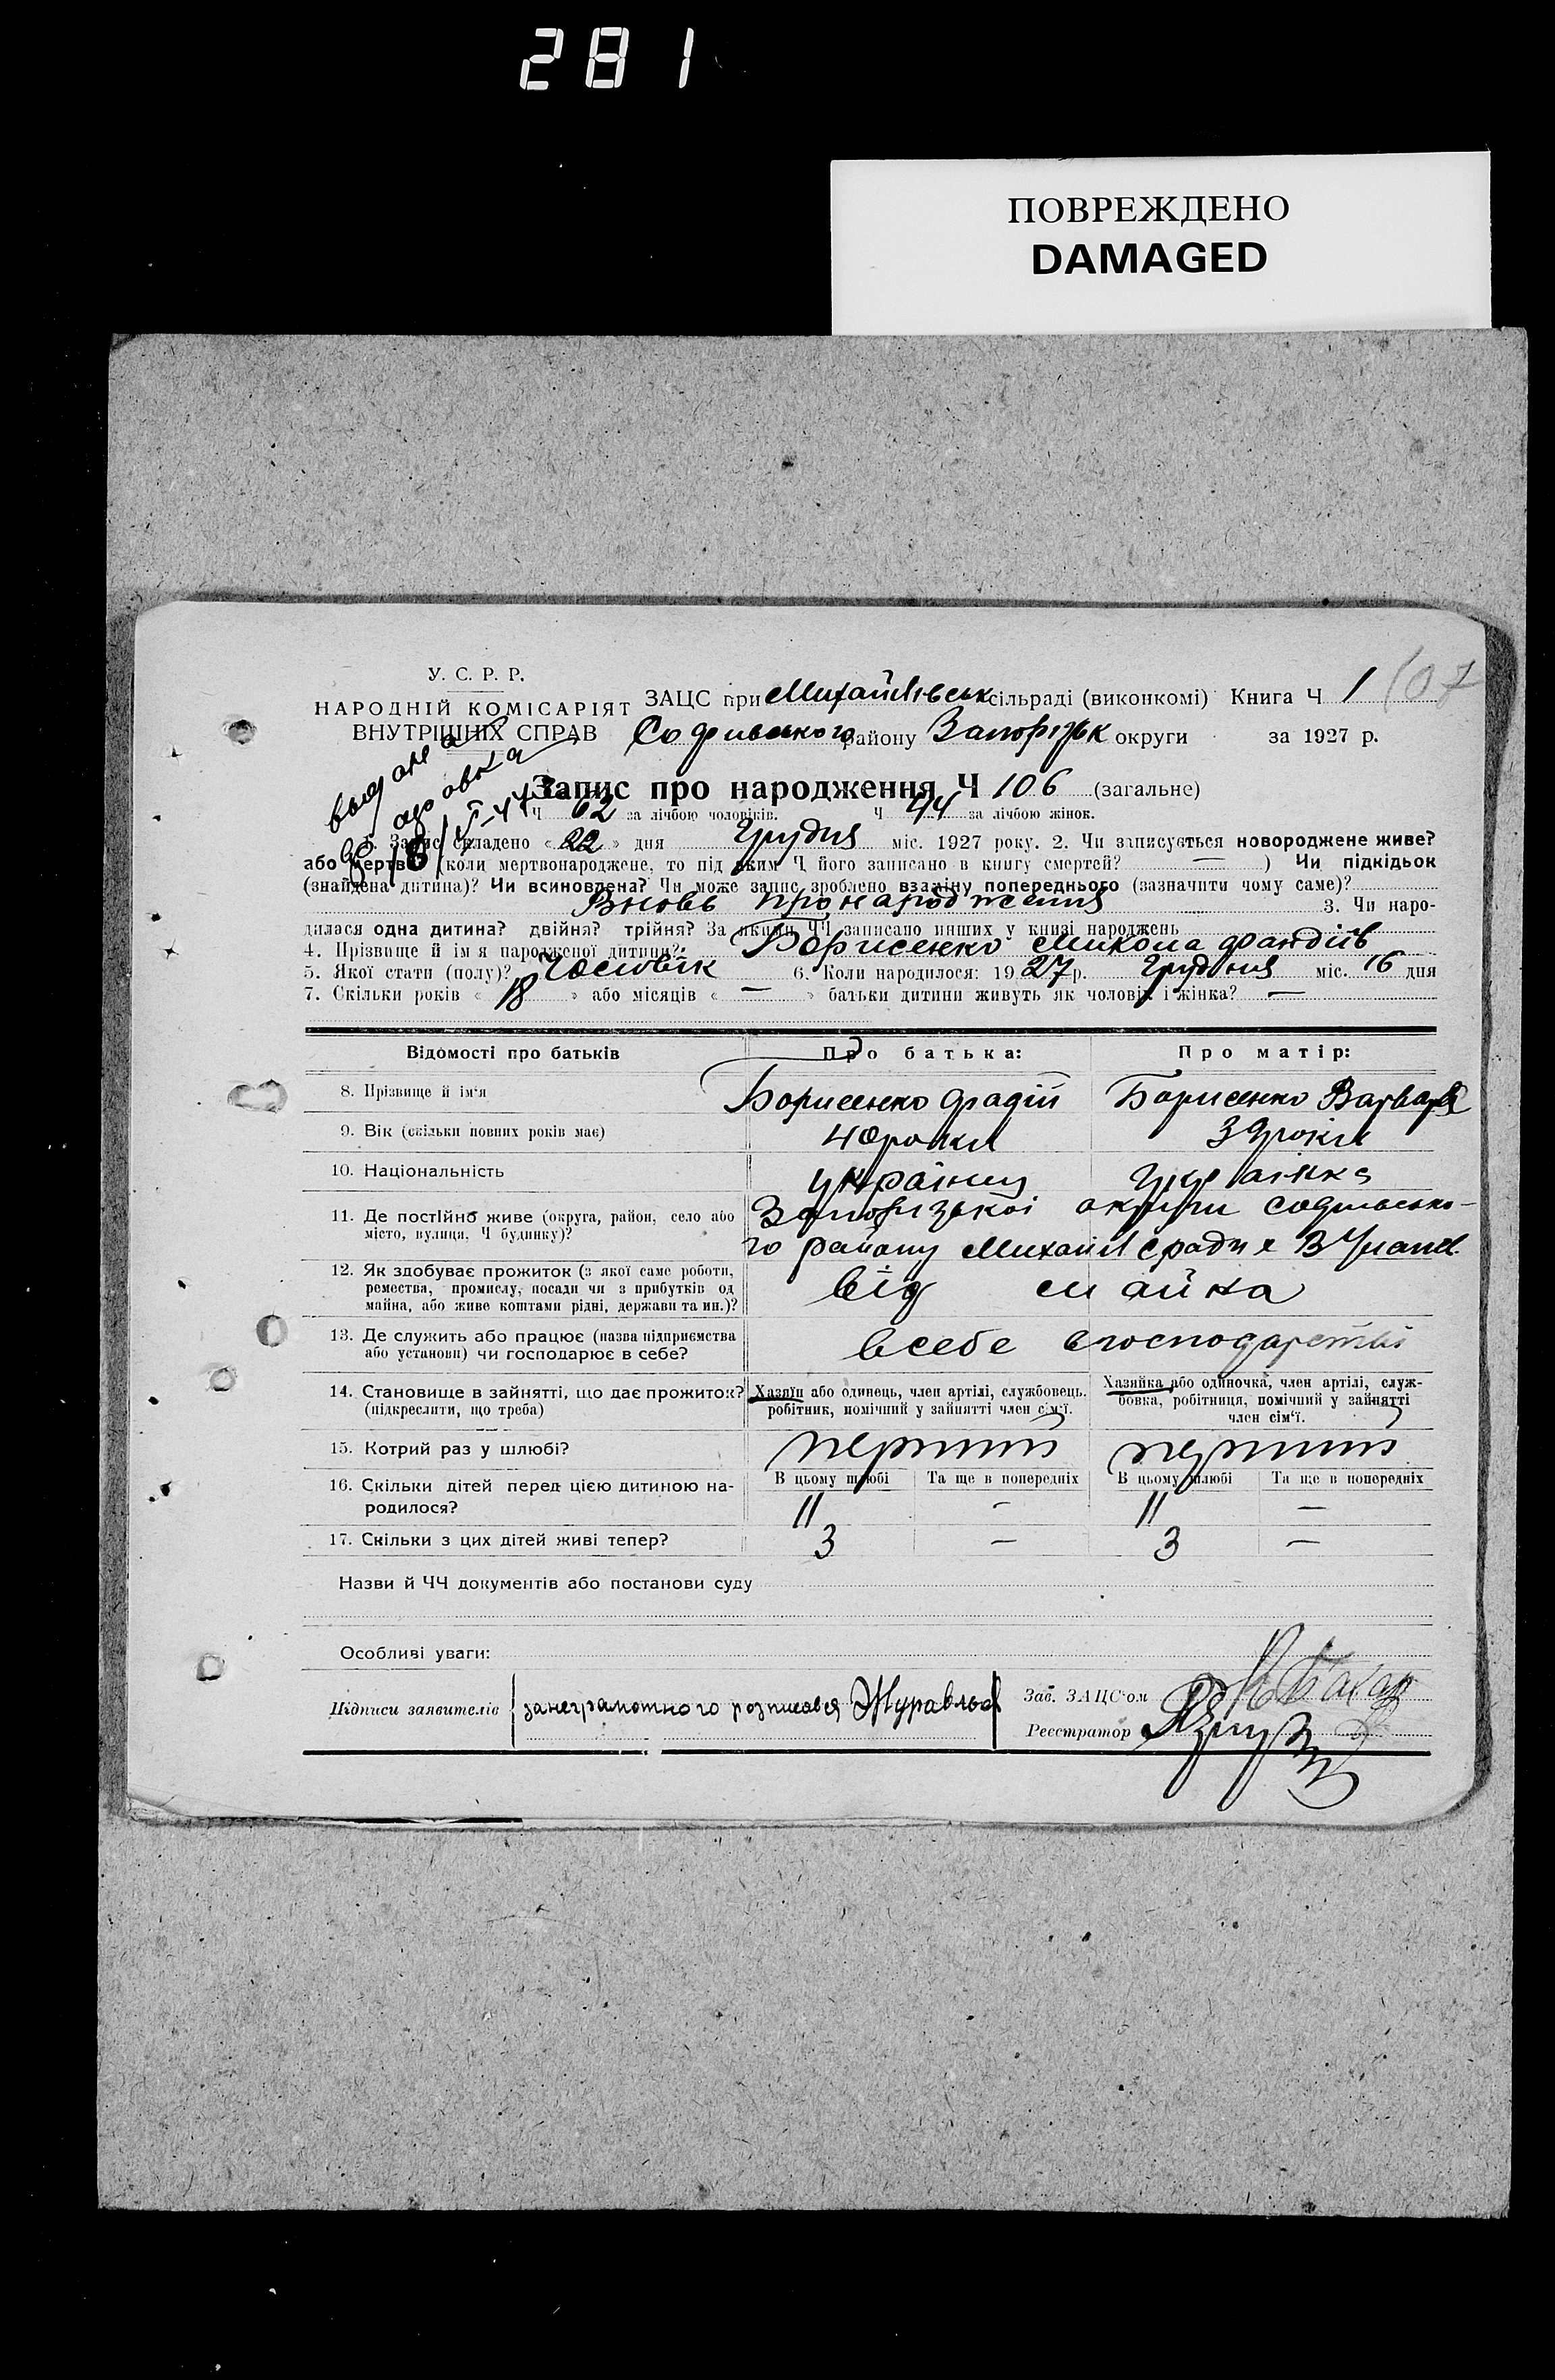 281
ПОВРЕЖДЕНО
DAMAGED
У. С. Р. Р.
НАРОДНІЙ КОМІСАРІЯТ
ВНУТРІШНІХ СПРАВ
ЗАЦС при Михайлівськ сільраді (виконкомі) Книга Ч 1 107
Софивського району Запорізьк округи за 1927 р.
Запис про народження Ч 106 (загальне)
Ч 62 за лічбою чоловіків. Ч 44 за лічбою жінок.
1. Запис складено « 22 » дня Грудня міс. 1927 року. 2. Чи записується новороджене живе?
або мертве (коли мертвонароджене, то під яким Ч його записано в книгу смертей? — ) Чи підкідьок
(знайдена дитина)? Чи всиновлена? Чи може запис зроблено взаміну попереднього (зазначити чому саме)?
Вновь про народження 3. Чи наро-
дилася одна дитина? двійня? трійня? За якими ЧЧ записано инших у книзі народжень
4. Прізвище й ім'я народженої дитини? Борисенко Микола
5. Якої стати (полу)? Чоловік 6. Коли народилося: 1927 р. Грудня міс. 16 дня
7. Скільки років « 18 » або місяців « — » батьки дитини живуть як чоловік і жінка? —
Відомості про батьків Про батька: Про матір:
8. Прізвище й ім'я Борисенко Борисенко Варвара
9. Вік (скільки повних років має) 40 роки 39 роки
10. Національність українец Українка
11. Де постійно живе (округа, район, село або Запорізькоі округи Софивсько-
місто, вулиця, Ч будинку)? го району Михайл сради х
12. Як здобуває прожиток (з якої саме роботи,
ремества, промислу, посади чи з прибутків од
майна, або живе коштами рідні, держави та ин.)? від майна
13. Де служить або працює (назва підприємства
або установи) чи господарює в себе? в себе в господарстві
14. Становище в зайнятті, що дає прожиток? Хазяїн або одинець, член артілі, службовець, Хазяйка або одиночка, член артілі, служ-
(підкреслити, що треба) робітник, помічний у зайнятті член сім'ї. бовка, робітниця, помічний у зайнятті
член сім'ї.
15. Котрий раз у шлюбі? первий первий
16. Скільки дітей перед цією дитиною на- В цьому шлюбі Та ще в попередніх В цьому шлюбі Та ще в попередніх
родилося? 11 — 11 —
17. Скільки з цих дітей живі тепер? 3 — 3 —
Назви й ЧЧ документів або постанови суду
Особливі уваги:
Підписи заявителів занеграмотного розписався Зав. ЗАЦС'ом
Реєстратор